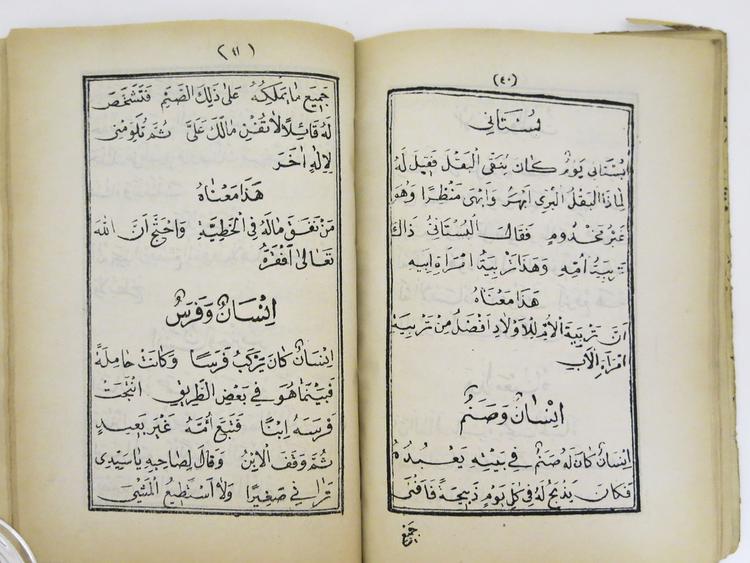 (٤٠)
بُسْتَانِي
بُسْتَانِي يَوْمٌ كَانَ يُنَقِّى الْبَقْلَ فَقِيلَ لَهُ
لِمَاذَا الْبَقْلُ الْبَرِّى أَبْهَرُ وَأَبْهَى مَنْظَرًا وَهُوَ
غَيْرُ مَخْدُومٍ فَقَالَ الْبُسْتَانِيُ ذَاكَ
تَرْبِيَةُ أُمِّهِ وَهَذَا تَرْبِيَةُ امْرَأَةِ أَبِيهِ
هَذَا مَعْنَاهُ
أَنَّ تَرْبِيَةَ الْأُمِّ لِلْأَوْلَادِ أَفْضَلُ مِنْ تَرْبِيَةِ
امْرَأَةِ الْأَبِ
إِنْسَانٌ وَصَنَمٌ
إِنْسَانٌ كَانَ لَهُ صَنَمٌ فِي بَيْتِهِ يَعْبُدُهُ
فَكَانَ يَذْبَحُ لَهُ فِي كُلِّ يَوْمٍ ذَبِيحَةً فَأَفْنَى
جَمِيعَ
(٤١)
جَمِيعَ مَا يَمْلِكُهُ عَلَى ذَلِكَ الصَّنَمِ فَتَشَخَّصَ
لَهُ قَائِلًا لَا تُفْنِ مَالَكَ عَلَىَّ ثُمَّ تَلُومُنِى
لِإِلَهٍ أَخَرَ
هَذَا مَعْنَاهُ
مَنْ نَفَقَ مَالَهُ فِي الْخَطِيَّةِ وَاحْتَجَّ أَنَّ اللهَ
تَعَالَى أَفْقَرَهُ
إِنْسَانٌ وَفَرَسٌ
إِنْسَانٌ كَانَ يَرْكَبُ فَرَسًا وَكَانَتْ حَامِلَةً
فَبَيْنَمَا هُوَ فِي بَعْضِ الطَّرِيقِ انْتَجَتْ
فَرَسُهُ ابْنًا فَتَبَعَ أُمَّهُ غَيْرَ بَعِيدٍ
ثُمَّ وَقَفَ الْابْنُ وَقَالَ لِصَاحِبِهِ يَا سَيِّدِى
تَرَانِي صَغِيرًا وَلَا أَسْتَطِيعُ الْمَشْيَ